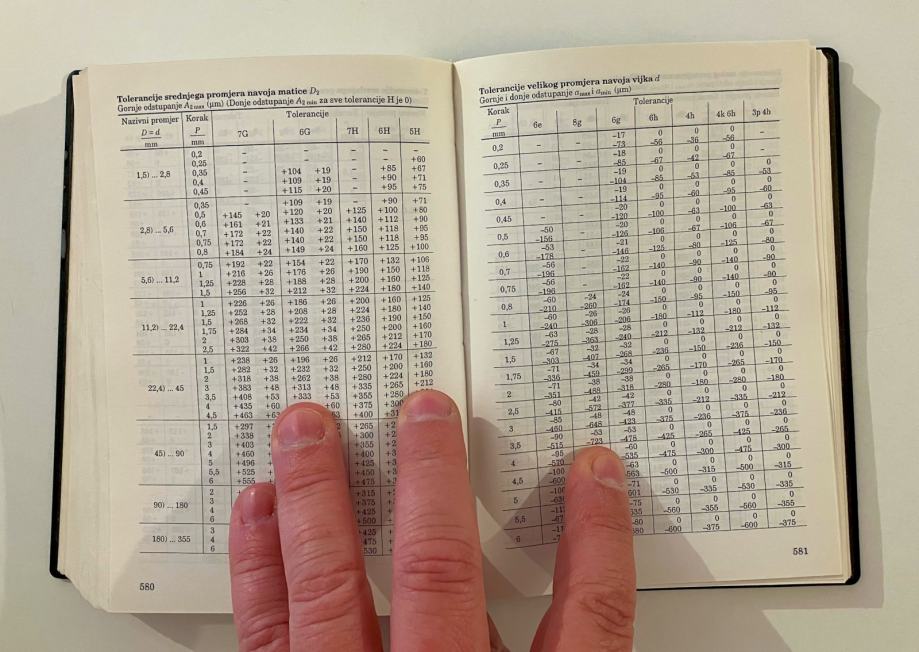 Tolerancije srednjega promjera navoja matice D₂
Gornje odstupanje A₂ max (μm) (Donje odstupanje A₂ min za sve tolerancije H je 0)
Nazivni promjer Korak Tolerancije
D = d P 7G 6G 7H 6H 5H
mm mm
0,2 – – – – –
0,25 – – – – +60
1,5) ... 2,8 0,35 – +104 +19 – +85 +67
0,4 – +109 +19 – +90 +71
0,45 – +115 +20 – +95 +75
0,35 – +109 +19 – +90 +71
0,5 +145 +20 +120 +20 +125 +100 +80
2,8) ... 5,6 0,6 +161 +21 +133 +21 +140 +112 +90
0,7 +172 +22 +140 +22 +150 +118 +95
0,75 +172 +22 +140 +22 +150 +118 +95
0,8 +184 +24 +149 +24 +160 +125 +100
0,75 +192 +22 +154 +22 +170 +132 +106
5,6) ... 11,2 1 +216 +26 +176 +26 +190 +150 +118
1,25 +228 +28 +188 +28 +200 +160 +125
1,5 +256 +32 +212 +32 +224 +180 +140
1 +226 +26 +186 +26 +200 +160 +125
1,25 +252 +28 +208 +28 +224 +180 +140
11,2) ... 22,4 1,5 +268 +32 +222 +32 +236 +190 +150
1,75 +284 +34 +234 +34 +250 +200 +160
2 +303 +38 +250 +38 +265 +212 +170
2,5 +322 +42 +266 +42 +280 +224 +180
1 +238 +26 +196 +26 +212 +170 +132
1,5 +282 +32 +232 +32 +250 +200 +160
2 +318 +38 +262 +38 +280 +224 +180
22,4) ... 45 3 +383 +48 +313 +48 +335 +265 +212
3,5 +408 +53 +333 +53 +355 +280
4 +435 +60 +60 +375
4,5 +463 +400
1,5 +297 +265
2 +338 +300
3 +403
45) ... 90 4 +460
5 +496
5,5 +525
6 +555
2 +315
90) ... 180 3 +375
4 +425
6 +500
3
180) ... 355 4
6
580
Tolerancije velikog promjera navoja vijka d
Gornje i donje odstupanje a max i a min (μm)
Korak Tolerancije
P 6e 8g 6g 6h 4h 4k 6h 3p 4h
mm
0,2 – – –17 0 0 0 –
–73 –56 –36 –56
0,25 – – –18 0 0 0 –
–85 –67 –42 –67
0,35 – – –19 0 0 0 0
–104 –85 –53 –85 –53
0,4 – – –19 0 0 0 0
–114 –95 –60 –95 –60
0,45 – – –20 0 0 0 0
–120 –100 –63 –100 –63
0,5 –50 – –20 0 0 0 0
–156 –126 –106 –67 –106 –67
0,6 –53 – –21 0 0 0 0
–178 –146 –125 –80 –125 –80
0,7 –56 – –22 0 0 0 0
–196 –162 –140 –90 –140 –90
0,75 –56 – –22 0 0 0 0
–196 –162 –140 –90 –140 –90
0,8 –60 –24 –24 0 0 0 0
–210 –260 –174 –150 –95 –150 –95
1 –60 –26 –26 0 0 0 0
–240 –306 –206 –180 –112 –180 –112
1,25 –63 –28 –28 0 0 0 0
–275 –363 –240 –212 –132 –212 –132
1,5 –67 –32 –32 0 0 0 0
–303 –407 –268 –236 –150 –236 –150
1,75 –71 –34 –34 0 0 0 0
–336 –459 –299 –265 –170 –265 –170
2 –71 –38 –38 0 0 0 0
–351 –488 –318 –280 –180 –280 –180
2,5 –80 –42 –42 0 0 0 0
–415 –572 –377 –335 –212 –335 –212
3 –85 –48 –48 0 0 0 0
–460 –648 –423 –375 –236 –375 –236
3,5 –90 –53 –53 0 0 0 0
–515 –723 –478 –425 –265 –425 –265
4 –95 –60 0 0 0 0
–570 –535 –475 –300 –475 –300
4,5 –63 0 0 0 0
–500 –315 –500 –315
5 –71 0 0 0 0
–530 –335 –530 –335
5,5 –75 0 0 0 0
–560 –355 –560 –355
6 0 0 0 0
–600 –375 –600 –375
581